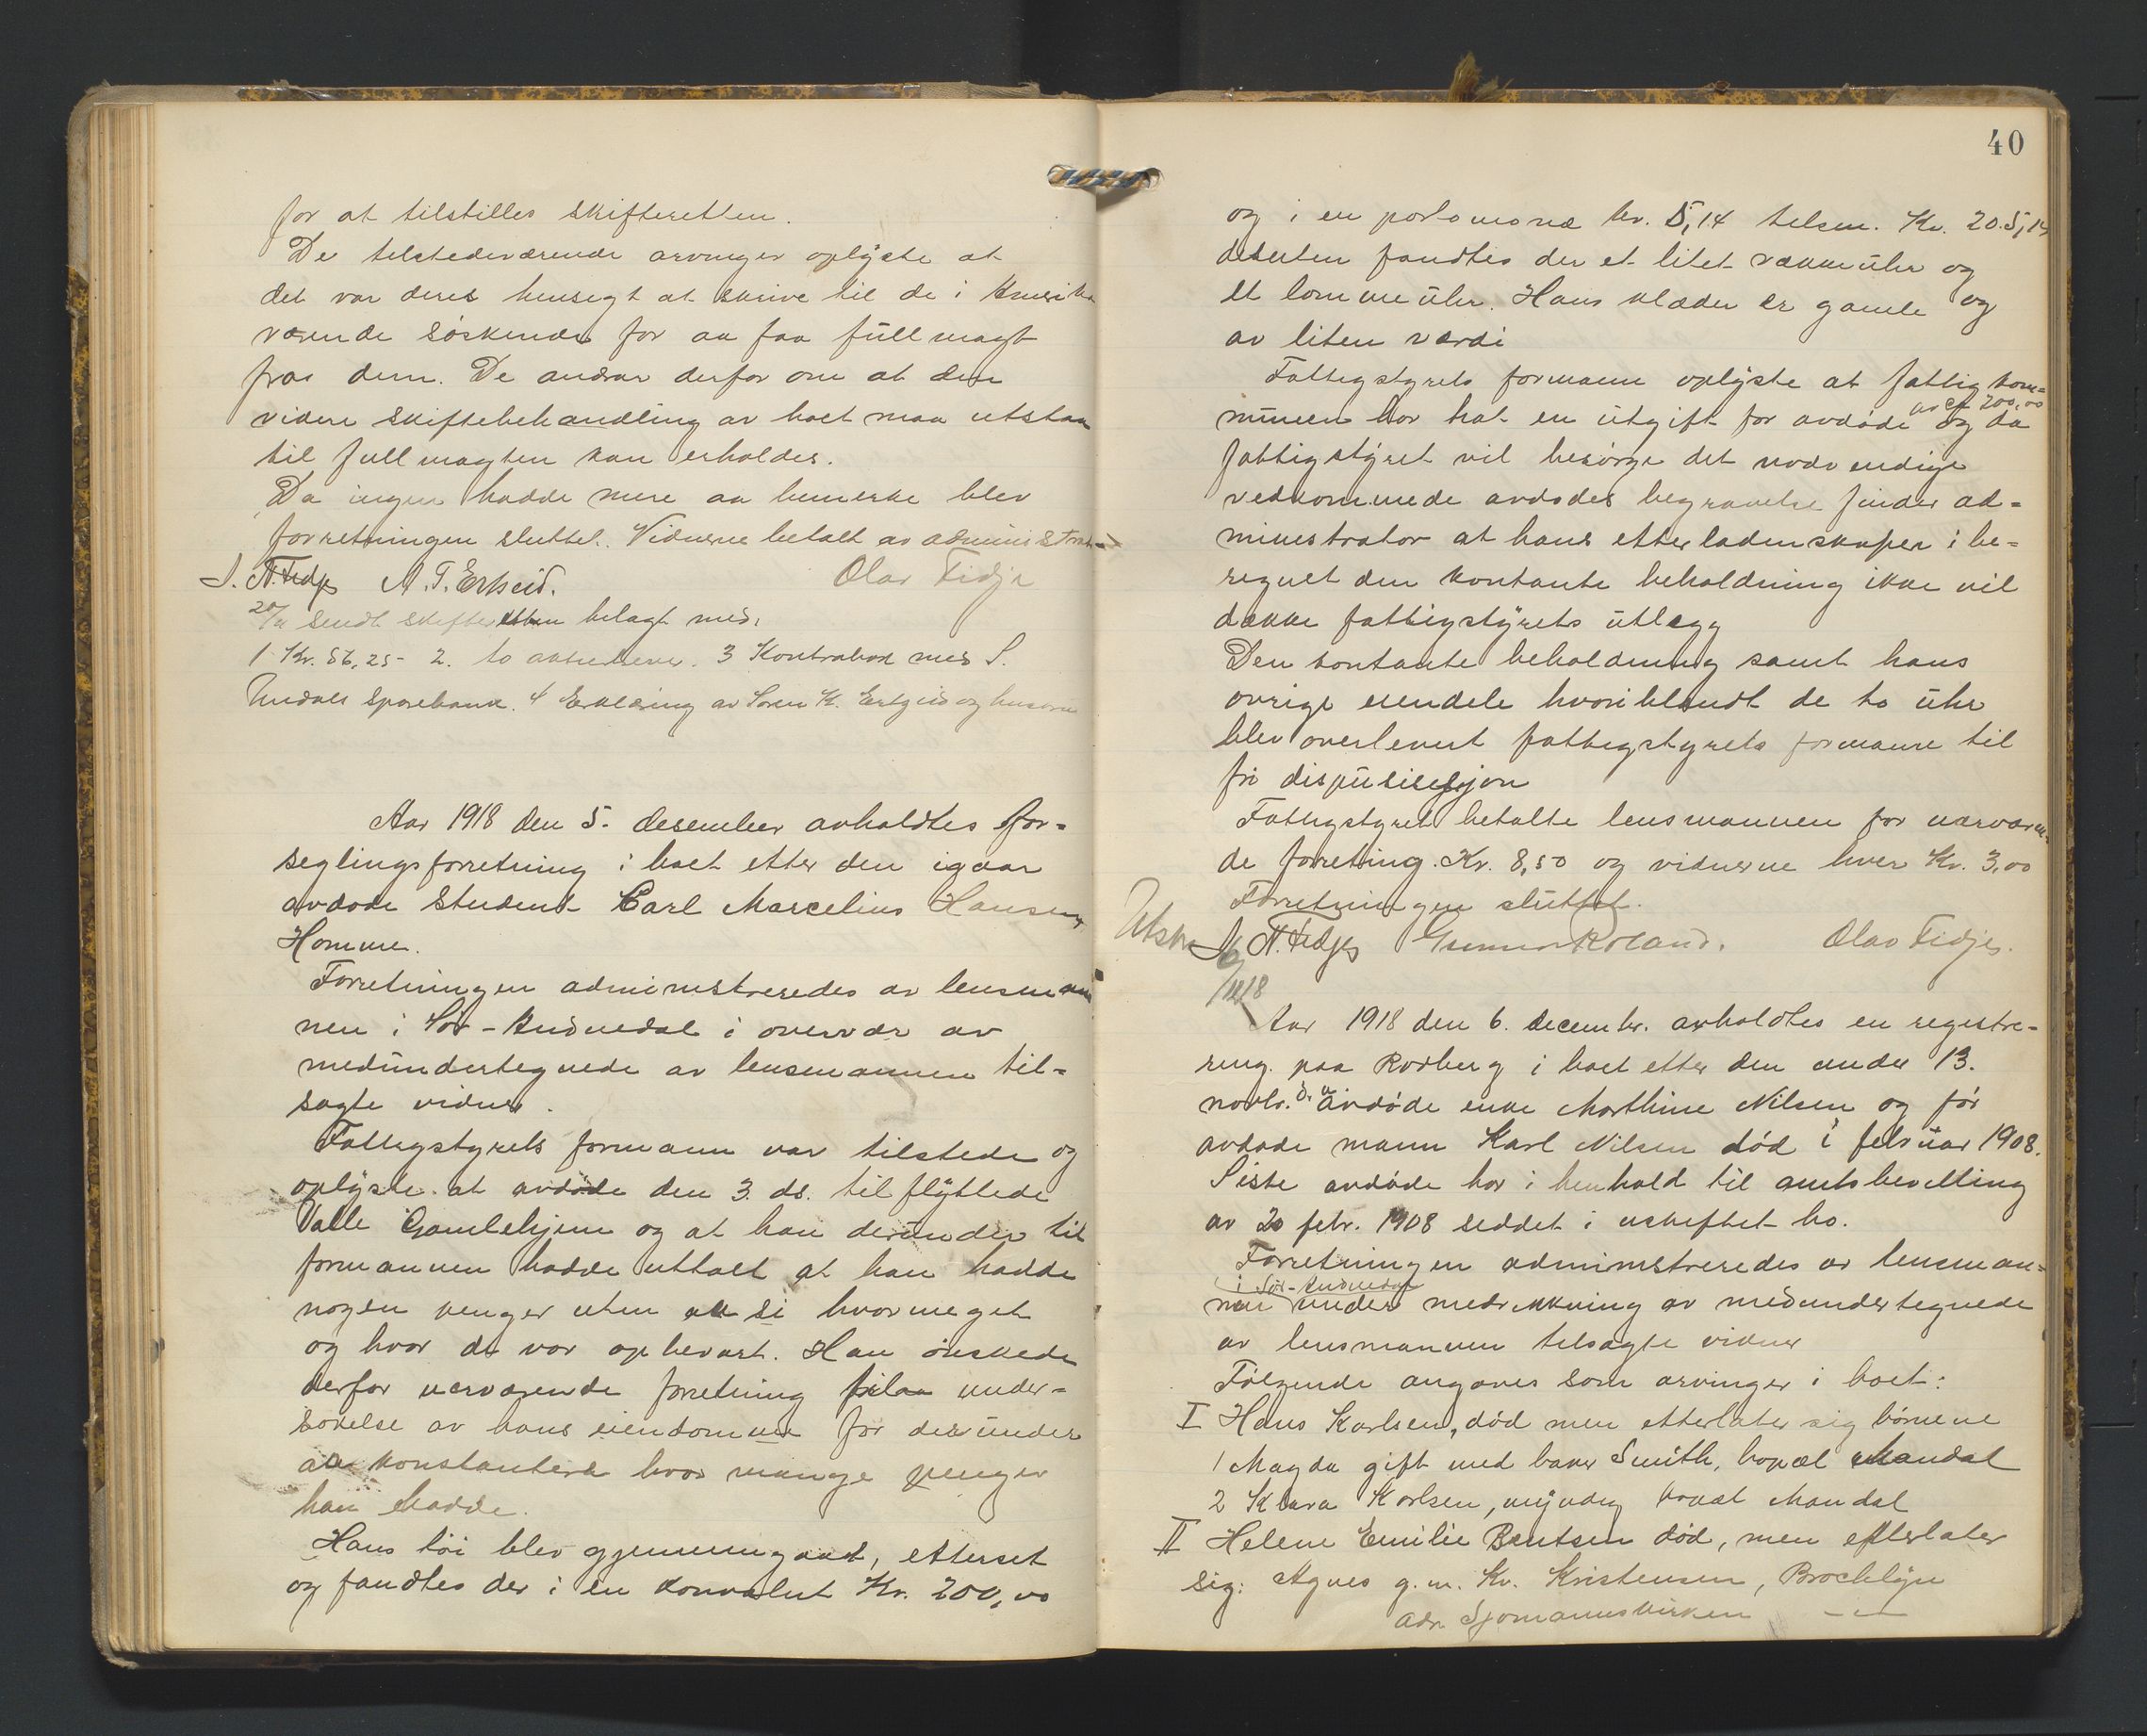 for at tilstilles skifteretten.
De tilstedeværende arvinger oplyste at
det var deres hensigt at skrive til de i Amerika
værende söskende for aa faa fullmagt
fraa dem. De andrar derfor om at den
videre skiftebehandling av boet maa utstaa
til fullmagten kan erholdes.
Da ingen hadde mere aa bemerke blev
forretningen sluttet. Vidnerne betalt av administrator
S. N. Fidje A. T. Ertseid. Olav Fidje
20/11 sendt skifteretten belagt med.
1 Kr. 56,25 - 2. to aktiebrever. 3 Kontrabok med S.
Undals Sparebank. 4 Erklæring av Søren K. Ertzeid og hustru
Aar 1918 den 5. desember avholdtes for=
seglingsforretning i boet etter den igaar
avdøde Student Carl Marcelius Hansen
Homme.
Forretningen administreredes av lensman
nen i Sør-Audnedal i overvær av
medundertegnede av lensmannen til=
sagte vidner.
Fattigstyrets formann var tilstede og
oplyste at avdøde den 3. ds. tilflyttede
Valle Gamlehjem og at han derunder til
formannen hadde uttalt at han hadde
nogen penger uten aa si hvormeget
og hvor de var opbevart. Han önskede
derfor nærværende forretning under=
søkelse av hans eiendomme for derunder
aa konstantere hvor mange penger
han hadde.
Hans töi blev gjennemgaat, etterset
og fandtes der i en konvolut Kr. 200,00
40
og i en portemonæ kr. 5,14 tilsm. Kr. 205,14
desuten fandtes der et litet vækkeuhr og
et lommeuhr. Hans klæder er gamle og
av liten værdi
Fattigstyrets formann oplyste at fattigkom=
munen har hat en utgift for avdøde av ca 200,00 og da
fattigstyret vil besörge det nodvendige
vedkommede avdödes begravelse finder ad=
ministrator at hans etterladenskaper i be=
regnet den kontante beholdning ikke vil
dække fattigstyrets utlegg
Den kontante beholdning samt hans
øvrige eiendele hvoriblandt de to uhr
blev overlevert fattigstyrets formann til
fri dispusisjon
Fattigstyret betalte lensmannen for nærværen=
de forretning. Kr. 8,50 og vidnerne hver Kr. 3,00
Forretningen sluttet.
Utskr. S. N. Fidje Gunnar Roland. Olav Fidje.
6/12 18
Aar 1918 den 6. decembr. avholdtes en registre=
ring paa Rodberg i boet etter den under 13.
novbr. d. a. avdöde enke Marthine Nilsen og för
avdøde mann Karl Nilsen död i februar 1908.
Siste avdöde har i henhold til amtsbevilling
av 20 febr. 1908 siddet i uskiftet bo.
Forretningen administreredes av lensman=
nen i Sør-Audnedal under medvirkning av medundertegnede
av lensmannen tilsagte vidner
Fölgende angaves som arvinger i boet:
I Hans Karlsen, död men etterlater sig börnene
1 Magda gift med baker Smith, bopæl Mandal
2 Klara Karlsen, myndig bopæl Mandal
II Helene Emilie Bentsen död, men efterlater
sig: Agnes g. m. Kr. Kristensen, Brocklyn
adr. Sjømannskirken — " —